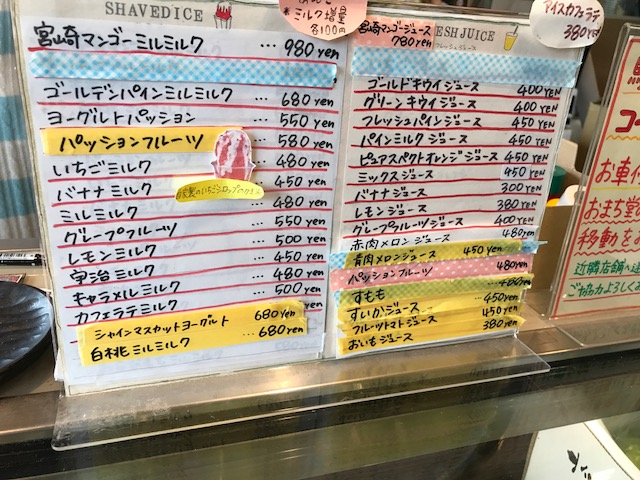 SHAVEDICE
ミルク増量
100円
宮崎マンゴーミルミルク … 980yen
ゴールデンパインミルミルク … 680yen
ヨーグルトパッション … 550yen
パッションフルーツ … 580yen
いちごミルク … 480yen
バナナミルク 450yen
ミルミルク … 480yen
グレープフルーツ … 550yen
レモンミルク … 500yen
宇治ミルク … 450yen
キャラメルミルク … 480yen
カフェラテミルク … 500yen
シャインマスカットヨーグルト 680yen
白桃ミルミルク … 680yen
FRESHJUICE
フレッシュジュース
宮崎マンゴージュース
780yen
ゴールドキウイジュース 400YEN
グリーンキウイジュース 400YEN
フレッシュパインジュース 450YEN
パインミルクジュース 450YEN
ピュアスペクトオレンジジュース 450YEN
ミックスジュース 450YEN
バナナジュース 300YEN
レモンジュース 380YEN
グレープフルーツジュース 400YEN
赤肉メロンジュース 480yen
青肉メロンジュース 450yen
パッションフルーツ 480yen
すもも … 480yen
すいかジュース 450yen
フルーツトマトジュース 450yen
おいもジュース 380yen
アイスカフェラテ
380YEN
お車
おまち
移動を
近隣店舗へ
ご協力よろしく